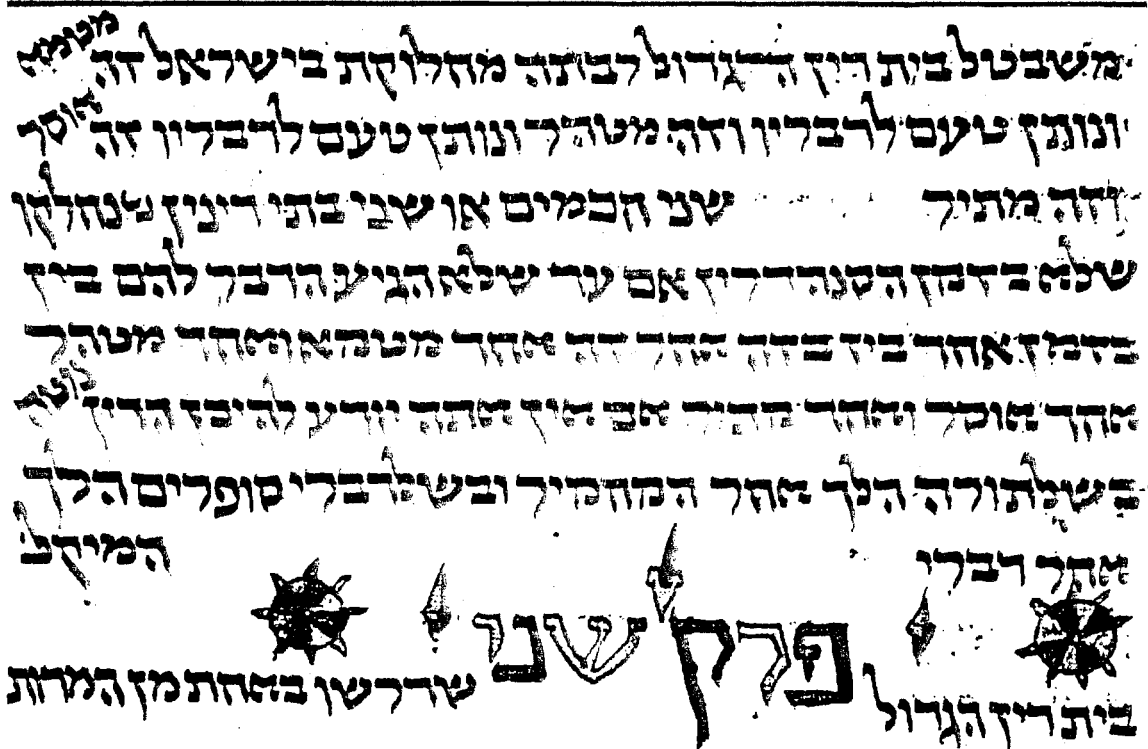 משבטל בית דין הגדול רבתה מחלוקת בישראל זה מטמא
ונותן טעם לדבריו וזה מטהר ונותן טעם לדבריו זה אוסר
וזה מתיר שני חכמים או שני בתי דינין שנחלקו
שלא בזמן הסנהדרין או עד שלא הגיע הדבר להם בין
בזמן אחד בין בזה אחר זה אחד מטמא ואחד מטהר
אחד אוסר ואחד מתיר אם אין אתה יודע להיכן הדין נוטה
בשלתורה הלך אחר המחמיר ובשלדברי סופרים הלך
אחר דברי המיקל
פרק שני
בית דין הגדול שדרשו באחת מן המדות